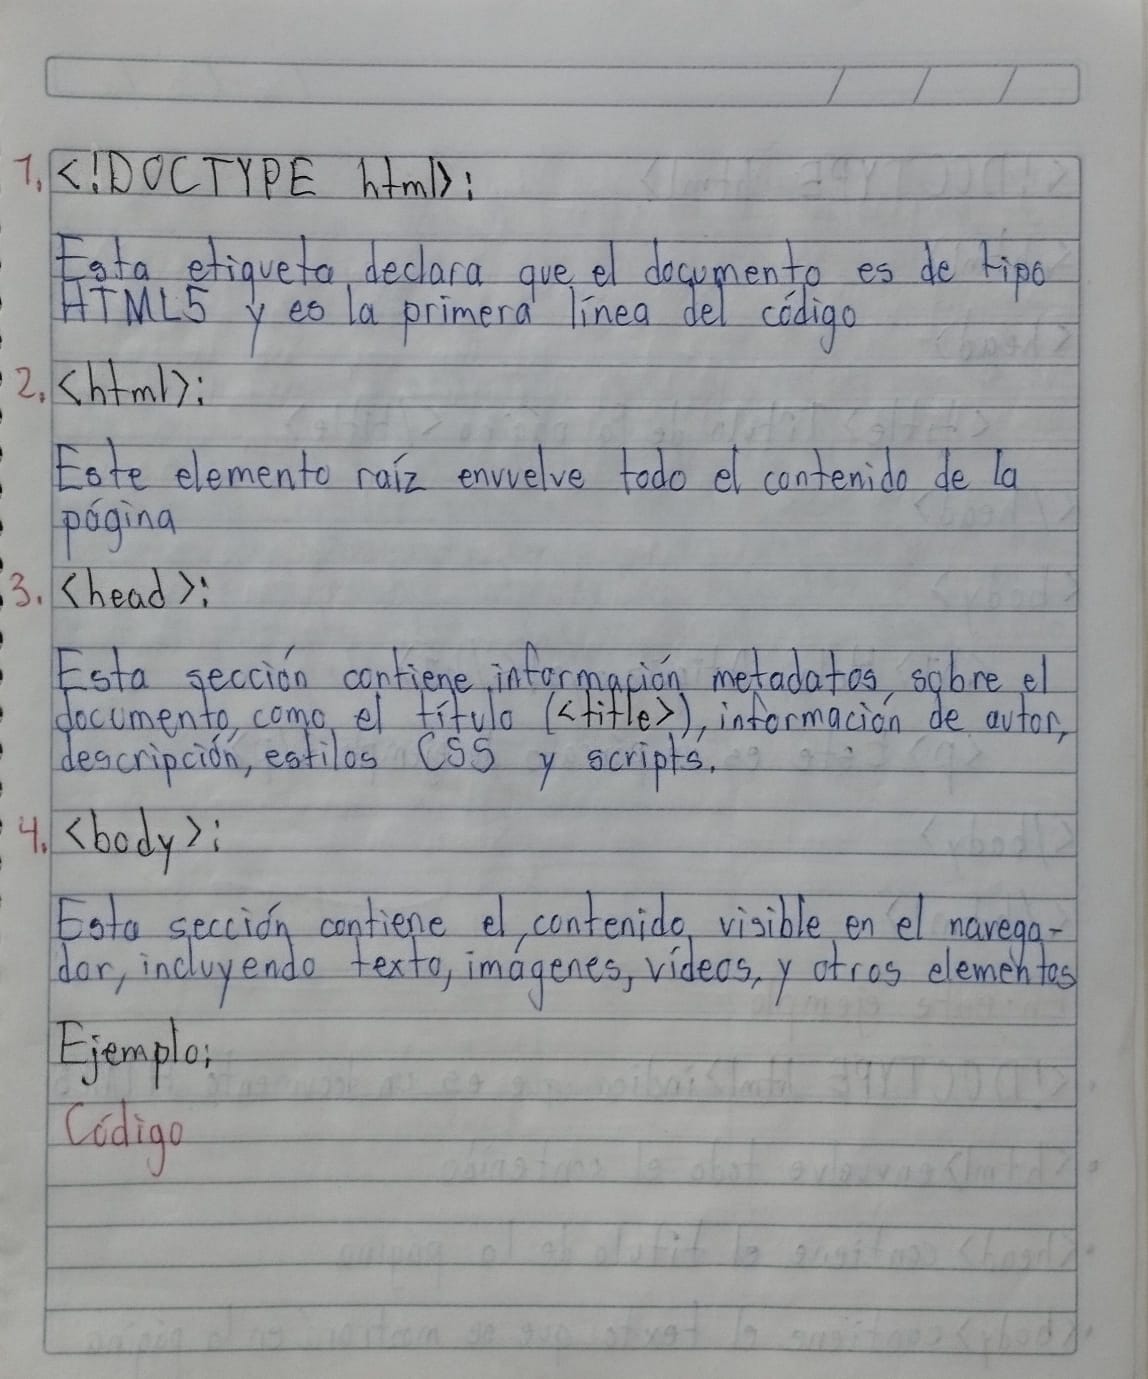 1. <!DOCTYPE html>:
Esta etiqueta declara que el documento es de tipo
HTML5 y es la primera línea del código
2. <html>:
Este elemento raíz envuelve todo el contenido de la
página
3. <head>:
Esta sección contiene información metadatos, sobre el
documento, como el título (<title>), información de autor,
descripción, estilos CSS y scripts.
4. <body>:
Esta sección contiene el contenido visible en el navega-
dor, incluyendo texto, imágenes, vídeos, y otros elementos
Ejemplo:
Código